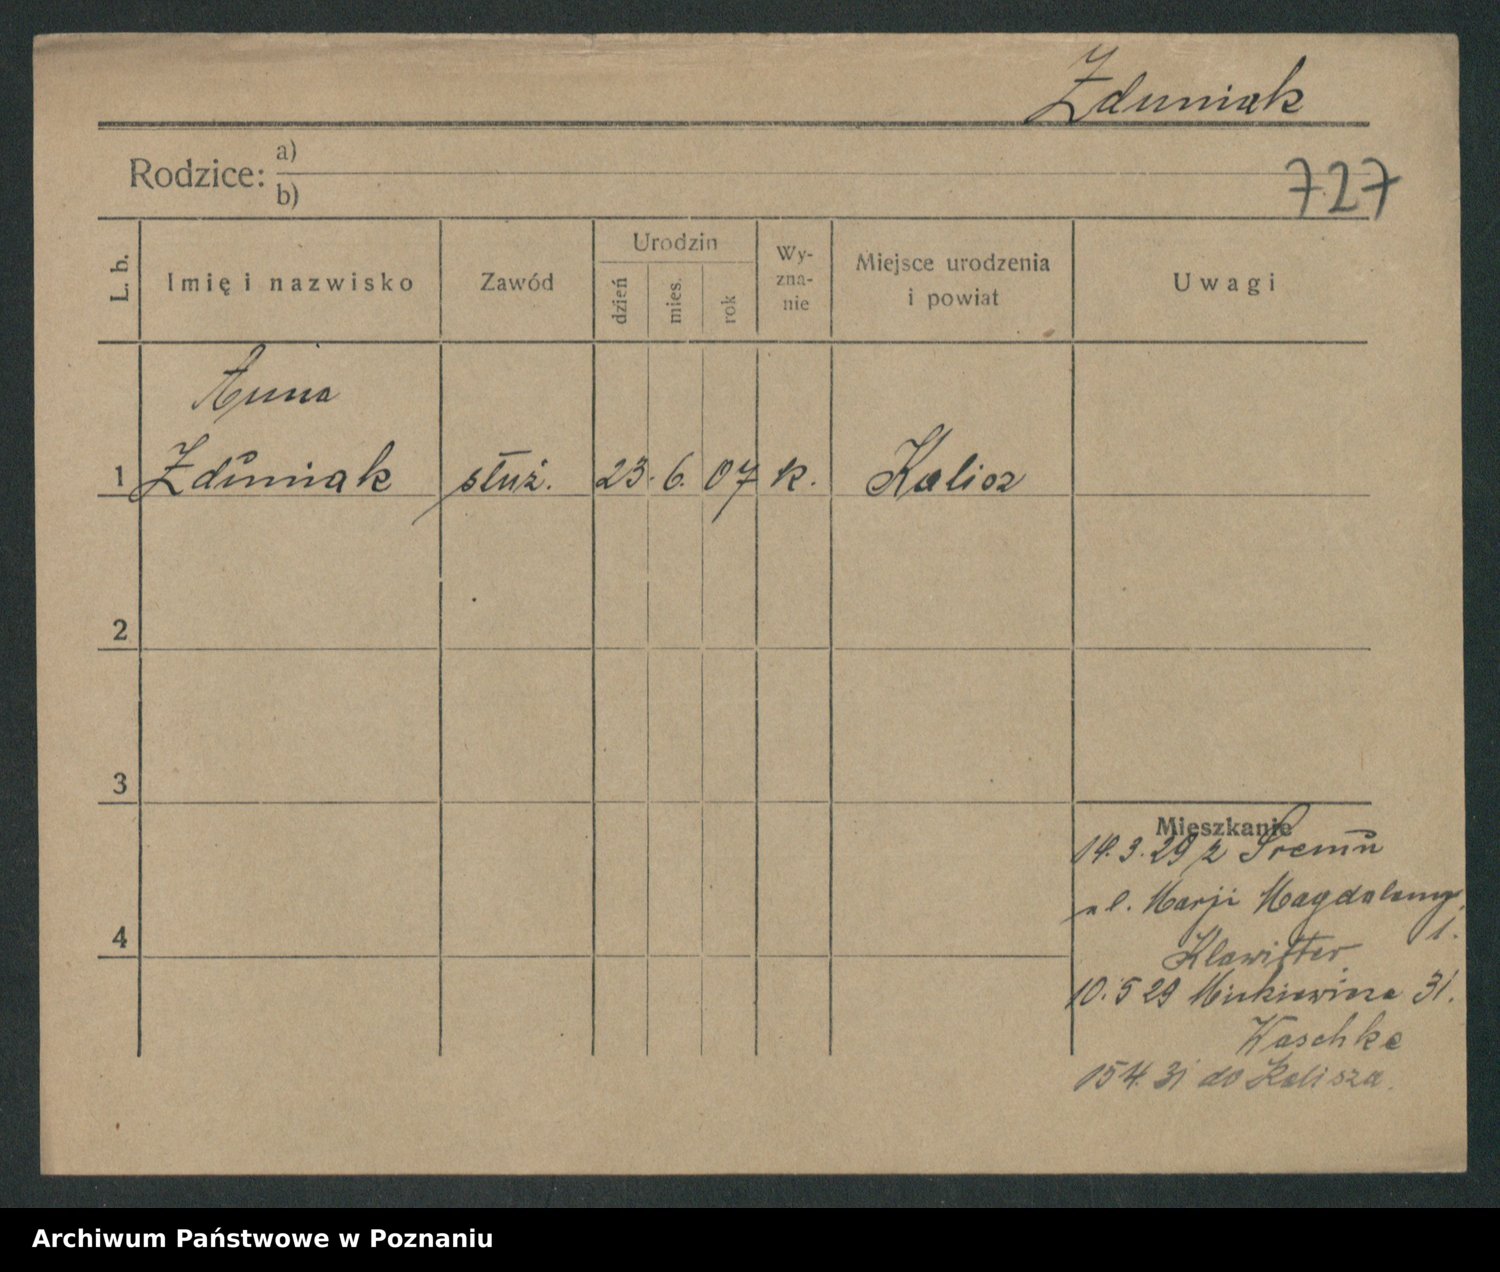 Zduniak
Rodzice: a)
b)
727
L. b.
Imię i nazwisko
Zawód
Urodzin
dzień
mies.
rok
Wy-
zna-
nie
Miejsce urodzenia
i powiat
Uwagi
Anna
1 Zduniak służ. 23. 6. 07 k. Kalisz
2
3
4
Mieszkanie
14.3.29 z Śremu
al. Marji Magdaleny
1.
Klawitter
10.5 29 Mickiewicza 31.
Waschke
15 4. 31 do Kalisza.
Archiwum Państwowe w Poznaniu